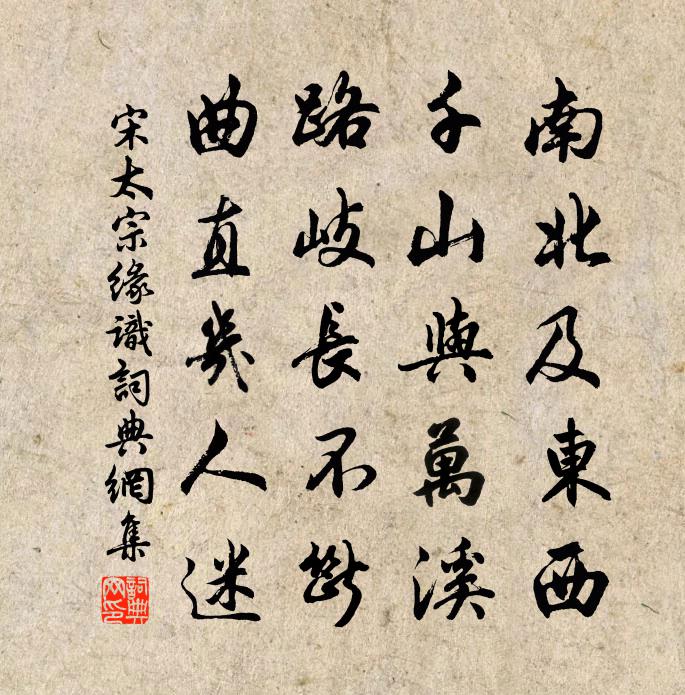 南北及東西
千山與萬溪
路岐長不斷
曲直幾人迷
宋太宗緣識詞典網集
詞典